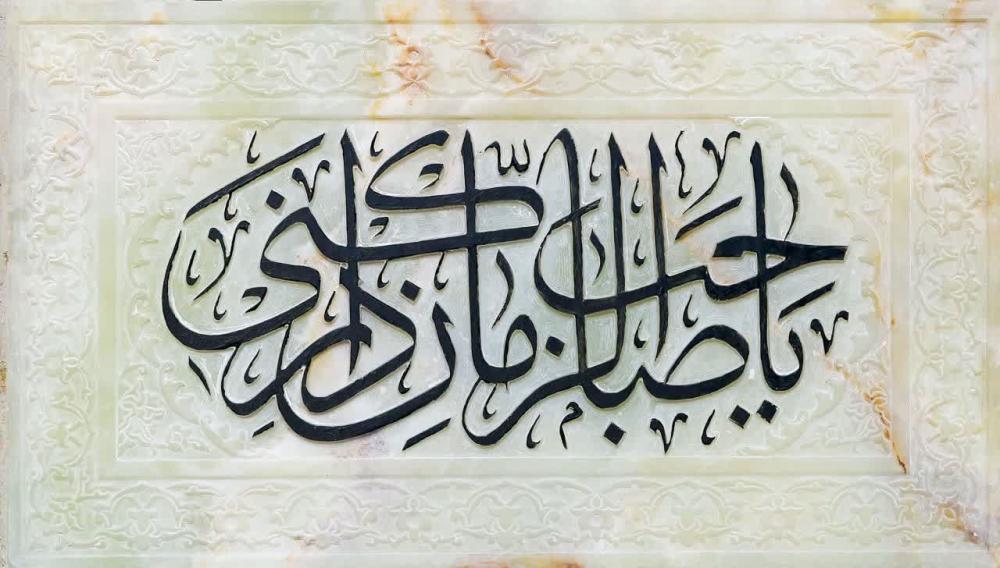 يا صاحب الزمان ادركنى